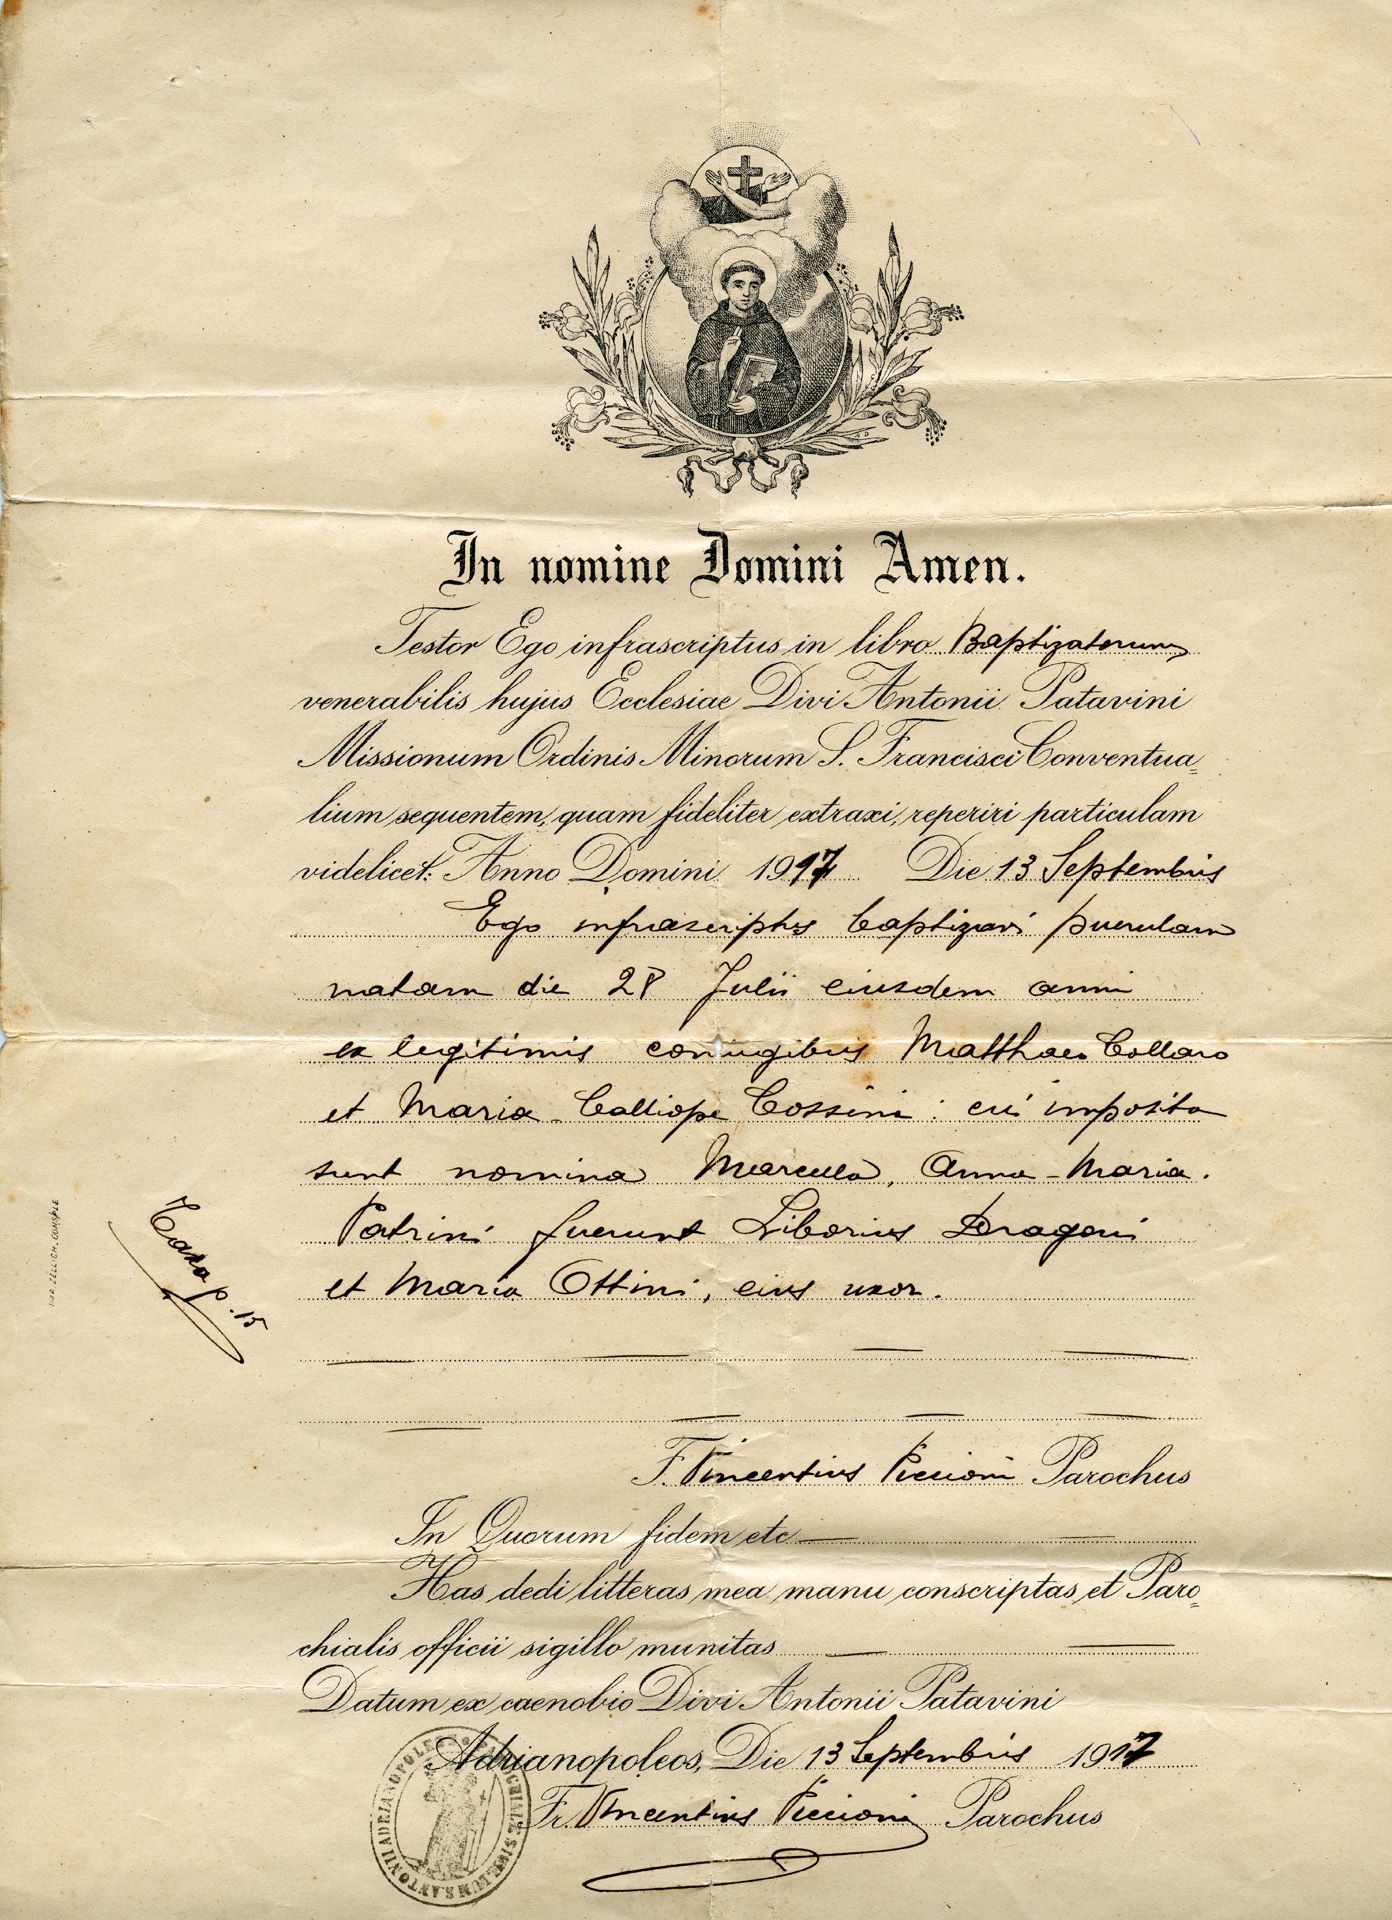 In nomine Domini Amen.
Testor Ego infrascriptus in libro Baptizatorum
venerabilis hujus Ecclesiae Divi Antonii Patavini
Missionum Ordinis Minorum S. Francisci Conventua=
lium sequentem, quam fideliter extraxi, reperiri particulam
videlicet: Anno Domini 1917 Die 13 Septembris
Ego infrascriptus baptizavi puerulam
natam die 28 Julii eiusdem anni
ex legitimis coniugibus Matthaeo Collaro
et Maria Calliope Cossini: cui imposita
sunt nomina Marcella, Anna-Maria.
Patrini fuerunt Liborius Dragoni
et Maria Ottini, eius uxor.
Taxa p. 15
F. Vincentius Piccioni Parochus
In Quorum fidem etc
Has dedi litteras mea manu conscriptas et Paro=
chialis officii sigillo munitas
Datum ex caenobio Divi Antonii Patavini
Adrianopoleos, Die 13 Septembris 1917
Fr. Vincentius Piccioni Parochus
S. ANTONII ADRIANOPOLE